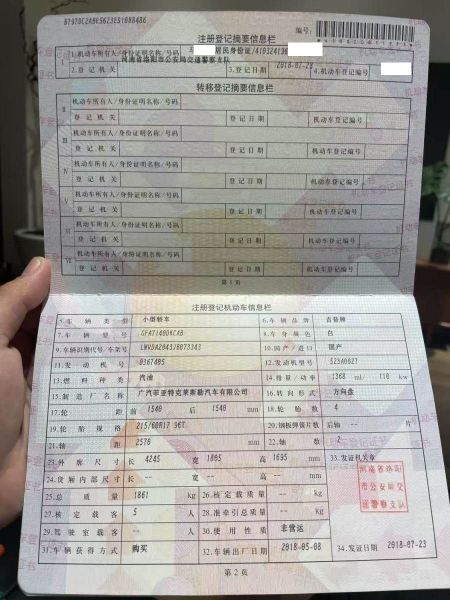 注册登记摘要信息栏
编号:
I 1.机动车所有人/身份证明名称/号码 居民身份证/4103241
2.登记机关 河南省洛阳市公安局交通警察支队 3.登记日期 2018-07-23 4.机动车登记编号
转移登记摘要信息栏
II 机动车所有人/身份证明名称/号码
登记机关 登记日期 机动车登记编号
III 机动车所有人/身份证明名称/号码
登记机关 登记日期 机动车登记编号
IV 机动车所有人/身份证明名称/号码
登记机关 登记日期 机动车登记编号
V 机动车所有人/身份证明名称/号码
登记机关 登记日期 机动车登记编号
VI 机动车所有人/身份证明名称/号码
登记机关 登记日期 机动车登记编号
VII 机动车所有人/身份证明名称/号码
登记机关 登记日期 机动车登记编号
第1页
注册登记机动车信息栏
5.车辆类型 小型轿车 6.车辆品牌
7.车辆型号 GFA7140DKCAB 8.车身颜色 白
9.车辆识别代号/车架号 10.国产/进口 国产
11.发动机号 0367405 12.发动机型号
13.燃料种类 汽油 14.排量/功率 1368 ml/ 110 kw
15.制造厂名称 广汽菲亚特克莱斯勒汽车有限公司 16.转向形式 方向盘
17.轮距 前 1540 后 1540 mm 18.轮胎数 4
19.轮胎规格 215/60R17 96T 20.钢板弹簧片数 后轴 -- 片
21.轴距 2570 mm 22.轴数 2
23.外廓尺寸 长 4245 宽 1805 高 1695 mm 33.发证机关
24.货厢内部尺寸 长 -- 宽 -- 高 -- mm 河南省洛阳
25.总质量 1861 kg 26.核定载质量 -- kg 市公安局交
27.核定载客 5 人 28.准牵引总质量 -- kg 通警察支队
29.驾驶室载客 -- 人 30.使用性质 非营运
31.车辆获得方式 购买 32.车辆出厂日期 2018-05-08 34.发证日期 2018-07-23
第2页